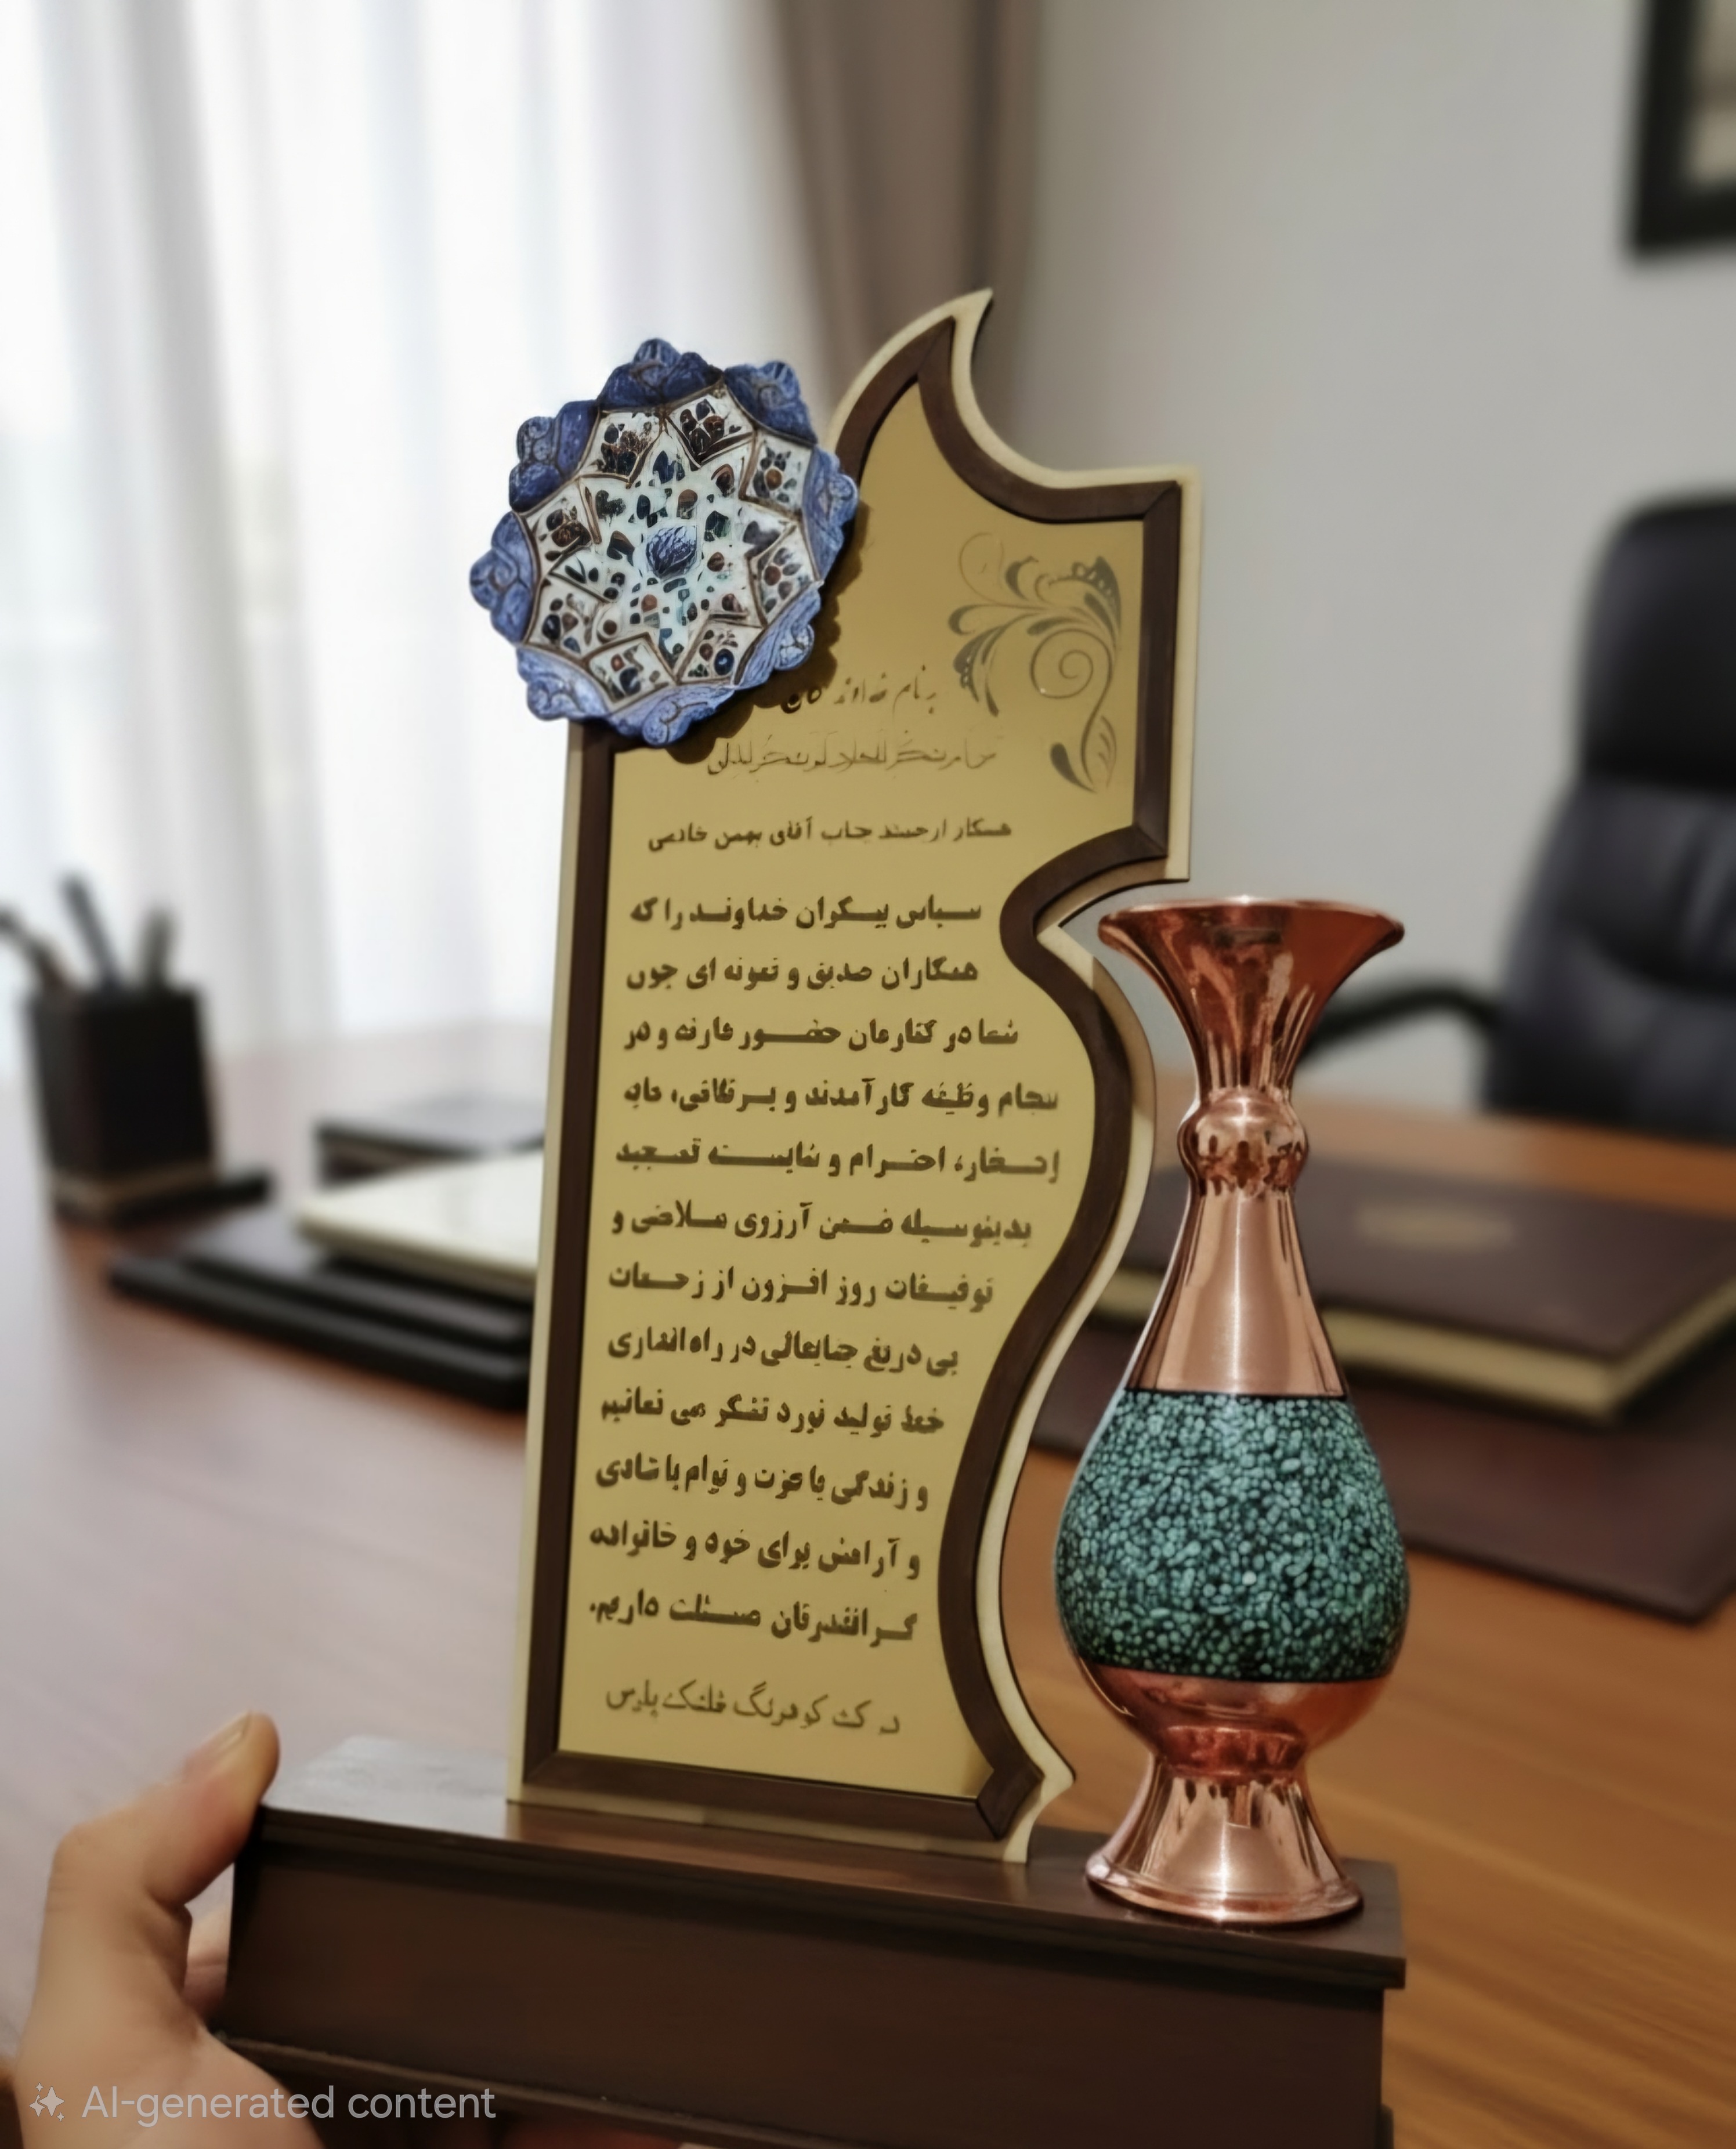 همکار ارجمند جناب آقای بهمن خادمی
سپاس بیکران خداوند را که
همکاران صدیق و نمونه ای چون
شما در کنارمان حضور دارند و در
وظیفه کارآمدند و
افتخار، احترام و شایسته تمجید
بدینوسیله ضمن آرزوی سلامتی و
توفیقات روز افزون از زحمات
بی دریغ جنابعالی در راه اندازی
خط تولید نورد تشکر می نمائیم
و زندگی با عزت و توام با شادی
و آرامش برای خود و خانواده
گرانقدرتان مسئلت داریم.
AI-generated content